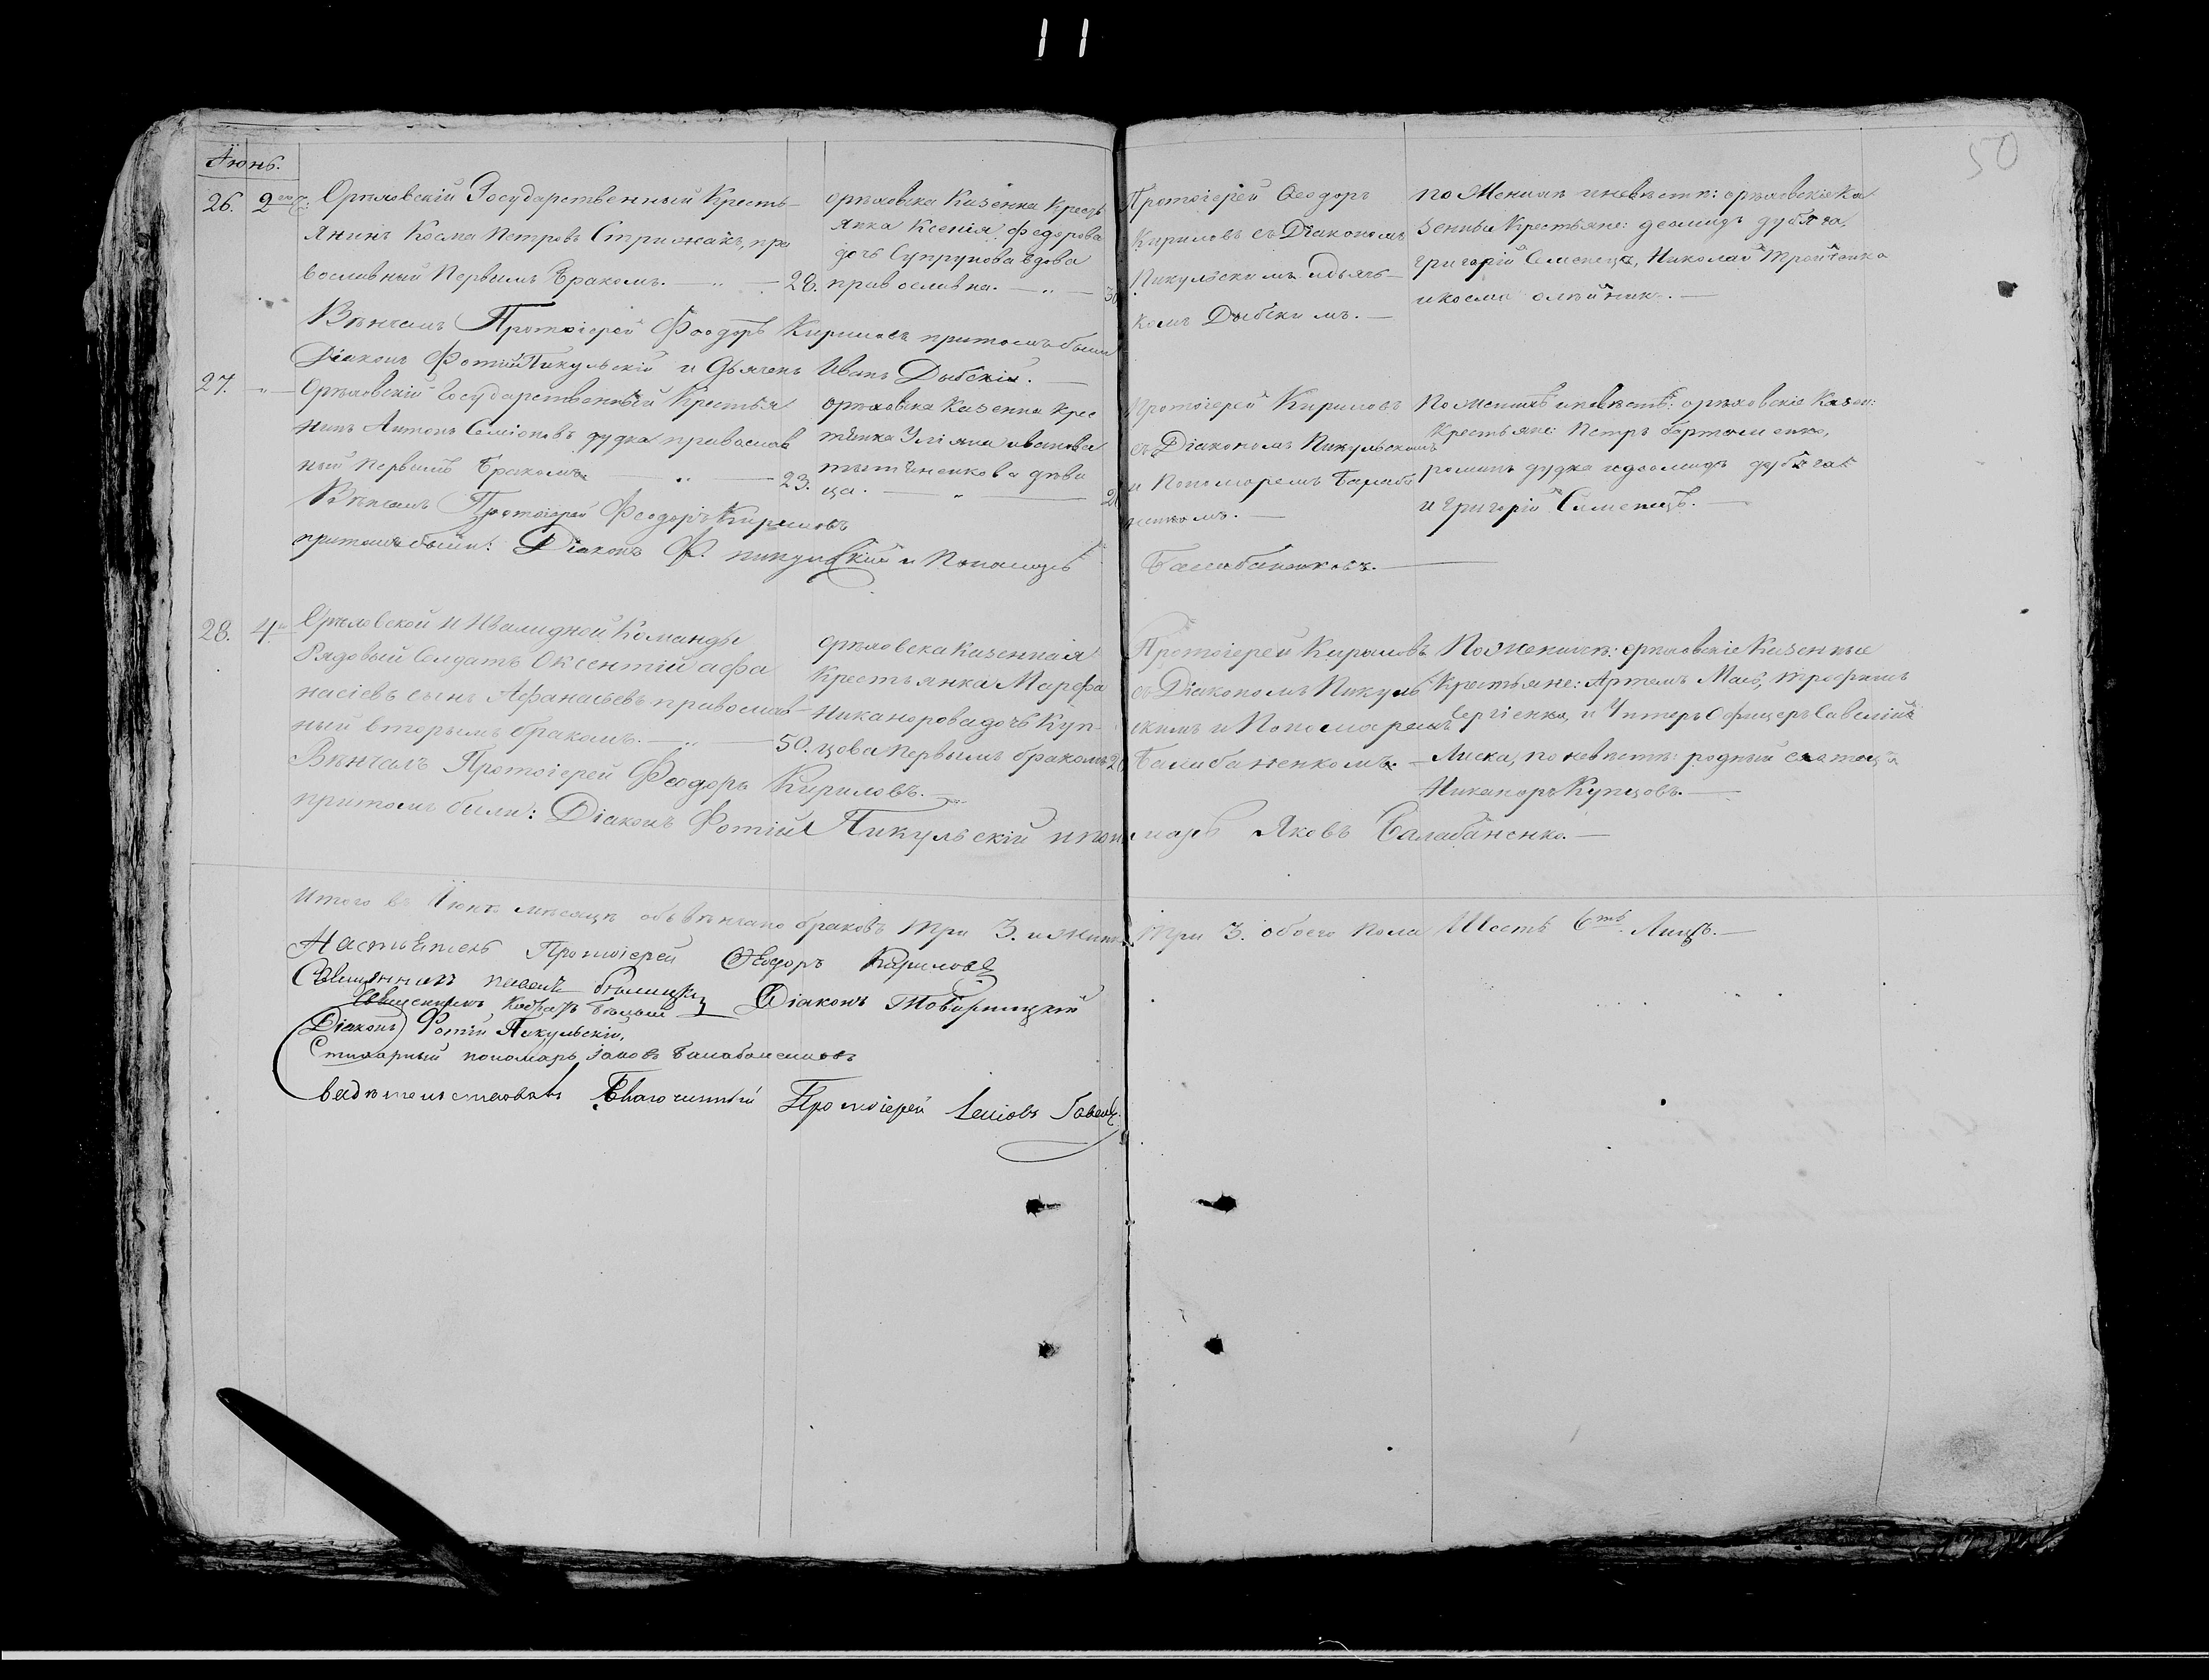 11
50
Июнь.
26. 2го Орѣховскій Государственный Кресть-
янинъ Косма Петровъ Стрижакъ, пра
вославный Первымъ Бракомъ. — „ — 28.
орѣховска Казенна Кресть
янка Ксенія Федорова
дочь Супрунова вдова
православна. — „ — 30
Протоіерей Ѳеодоръ
Кириловъ съ Діакономъ
Пикульскимъ и дьяч-
комъ Дыбскимъ. —
по Жениху и невѣстѣ: орѣховскіе Ка
зенные Крестьяне:
Григорій Семенецъ, Николай
и косма олѣйникъ. —
Вѣнчалъ Протоіерей Феодоръ Кириловъ притомъ были
Діаконъ Фотій Пикульскій и Дьячекъ Иванъ Дыбскій. —
27. „ — Орѣховскій Государственный Крестья
нинъ Антонъ Семіоновъ дудка православ
ный первымъ Бракомъ — „ — 23.
орѣховска Казенна Крес
тянка Уліяна иванова
дѣви
ца. — „ — 20
Протоіерей Кириловъ
съ Діакономъ Пикульскимъ
и Пономаремъ Балаба
ненкомъ. —
По Жениху и невѣстѣ: орѣховскіе Казен:
Крестьяне: Петръ
романъ дудка
и Григорій Семенецъ. —
Вѣнчалъ Протоіерей Феодоръ Кириловъ
притомъ были: Діаконъ Ф. пикульскій и Пономарь Балабаненковъ. —
28. 4го Орѣховской Инвалидной Команды
Рядовый Солдатъ Оксентій афа
насіевъ сынъ Афанасьевъ православ-
ный вторымъ бракомъ. — „ — 50.
орѣховска Казенная
Крестьянка Марфа
Никанорова дочь Куп-
цова первымъ бракомъ 20
Протоіерей Кириловъ
съ Діакономъ Пикуль
скимъ и Пономаремъ
Балабаненкомъ. —
По Жениху: орѣховскіе Казенные
Крестьяне: Артемъ Маго, трофимъ
Сергіенко, и Унтеръ Офицеръ Савелій
Лиска, по невѣстѣ: родный отецъ
Никаноръ Купцовъ. —
Вѣнчалъ Протоіерей Феодоръ Кириловъ. —
притомъ были: Діаконъ Фотій Пикульскій и пономарь Яковъ Балабаненко. —
Итого въ Июнѣ мѣсяцѣ обвѣнчано браковъ три 3. и женъ три 3. обоего пола Шесть 6ть Лицъ. —
Настоятель Протоіерей Ѳеодоръ Кириловъ
Священникъ
Священникъ Діаконъ
Діаконъ Фотій Пикульскій,
Стихарный пономарь Іаковъ Балабаненковъ
Свидѣтельствовалъ Благочинный Протоіерей